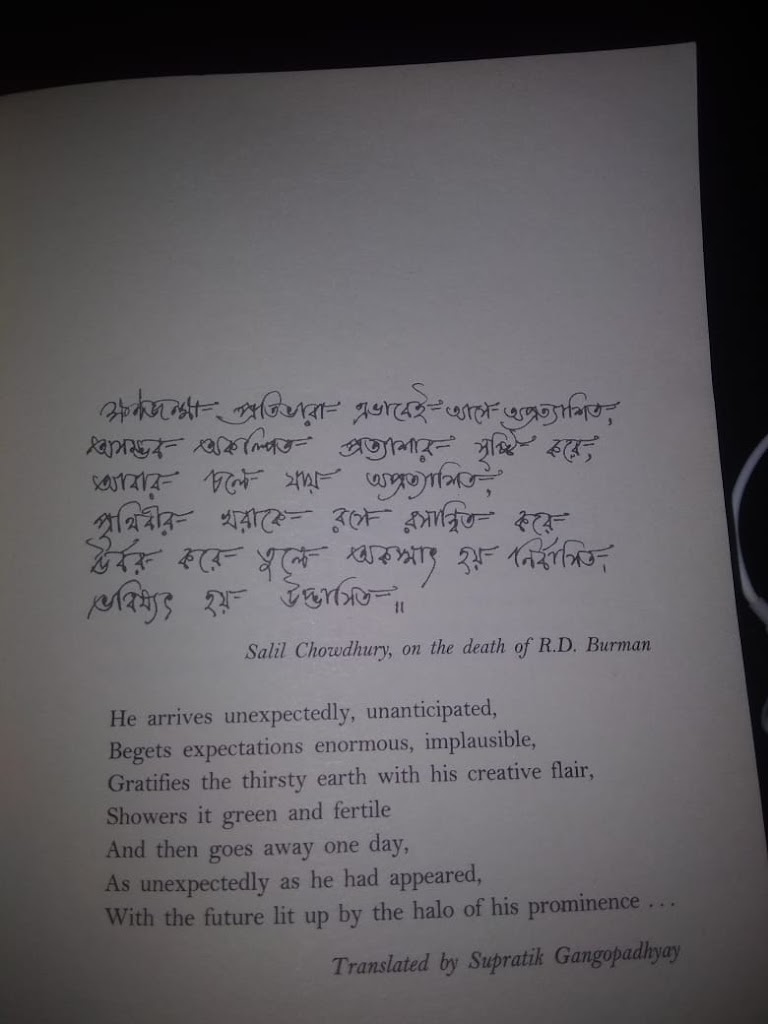 ক্ষণজন্মা প্রতিভারা এভাবেই আসে অপ্রত্যাশিত,
অসম্ভব অকল্পিত প্রত্যাশার সৃষ্টি করে,
আবার চলে যায় অপ্রত্যাশিত,
পৃথিবীর খরাকে রসে রসান্বিত করে
উর্বর করে তুলে অকস্মাৎ হয় নির্বাসিত,
ভবিষ্যৎ হয় উদ্ভাসিত॥
Salil Chowdhury, on the death of R.D. Burman
He arrives unexpectedly, unanticipated,
Begets expectations enormous, implausible,
Gratifies the thirsty earth with his creative flair,
Showers it green and fertile
And then goes away one day,
As unexpectedly as he had appeared,
With the future lit up by the halo of his prominence ...
Translated by Supratik Gangopadhyay